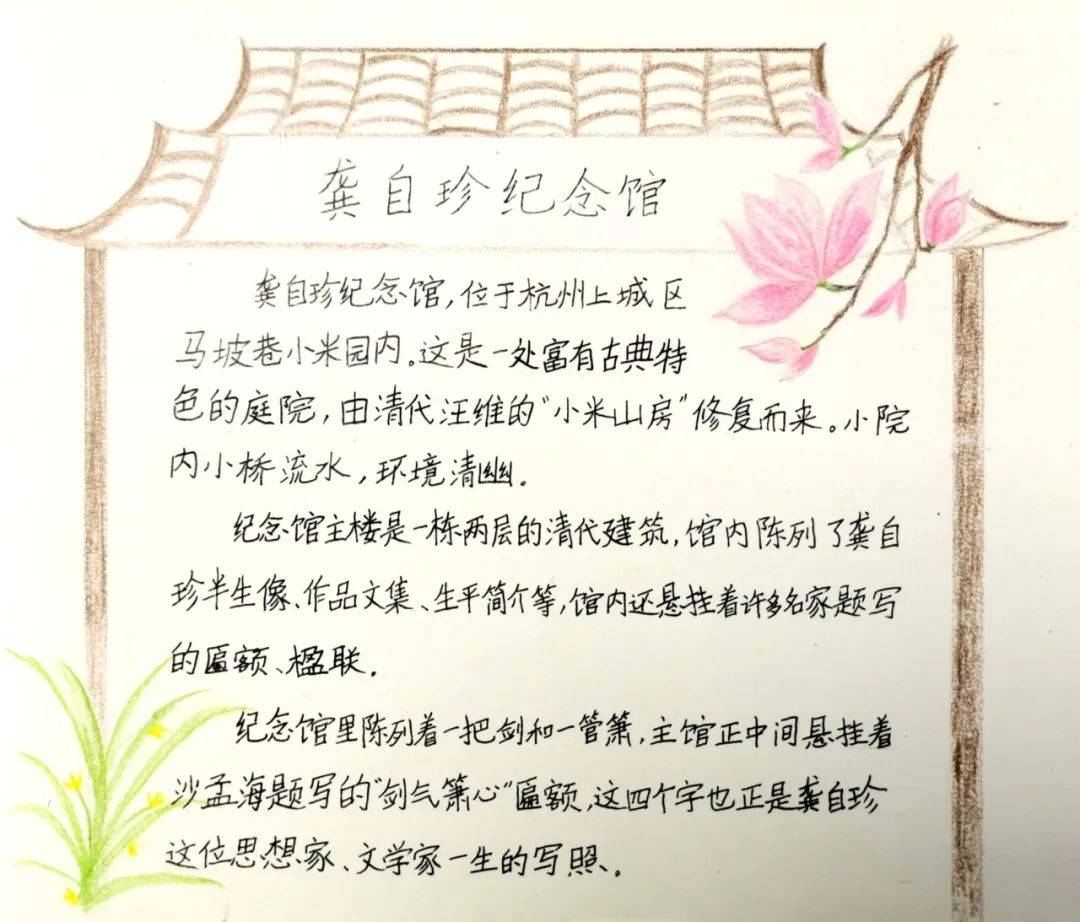 龚自珍纪念馆
龚自珍纪念馆,位于杭州上城区
马坡巷小米园内。这是一处富有古典特
色的庭院,由清代汪维的“小米山房”修复而来。小院
内小桥流水,环境清幽.
纪念馆主楼是一栋两层的清代建筑,馆内陈列了龚自
珍半生像、作品文集、生平简介等,馆内还悬挂着许多名家题写
的匾额、楹联.
纪念馆里陈列着一把剑和一管箫,主馆正中间悬挂着
沙孟海题写的“剑气箫心”匾额,这四个字也正是龚自珍
这位思想家、文学家一生的写照.